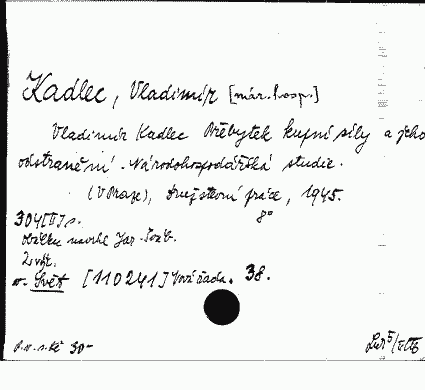 Kadlec, Vladimír [nár. hosp.]
Vladimír Kadlec Přebytek kupní síly a jeho
odstranění. Národohospodářská studie.
(V Praze), Družstevní práce, 1945.
8°
304[II] s.
obálku navrhl Jar. Šváb.
2. vyd.
Svět [110241] Nová řada. 38.
30-